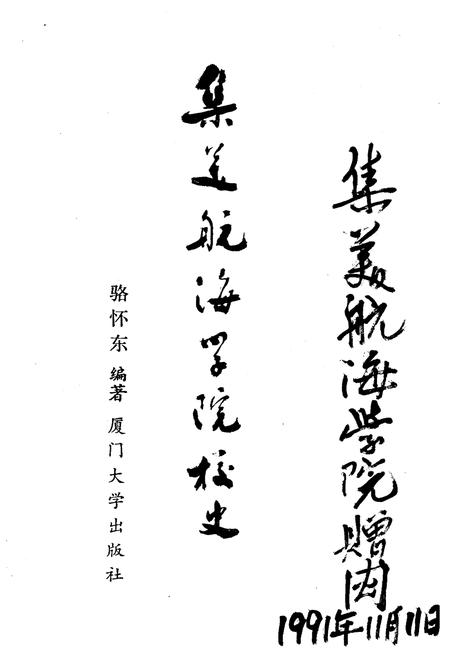 集美航海学院赠阅
1991年11月11日
集美航海学院校史
骆怀东 编著 厦门大学出版社